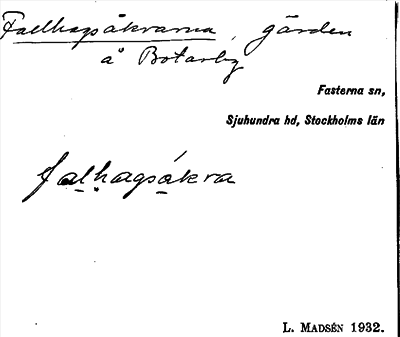 Fallhagsåkrarna, gärden
å Botarby
Fasterna sn,
Sjuhundra hd, Stockholms län
falhagsåkra
L. Madsén 1932.